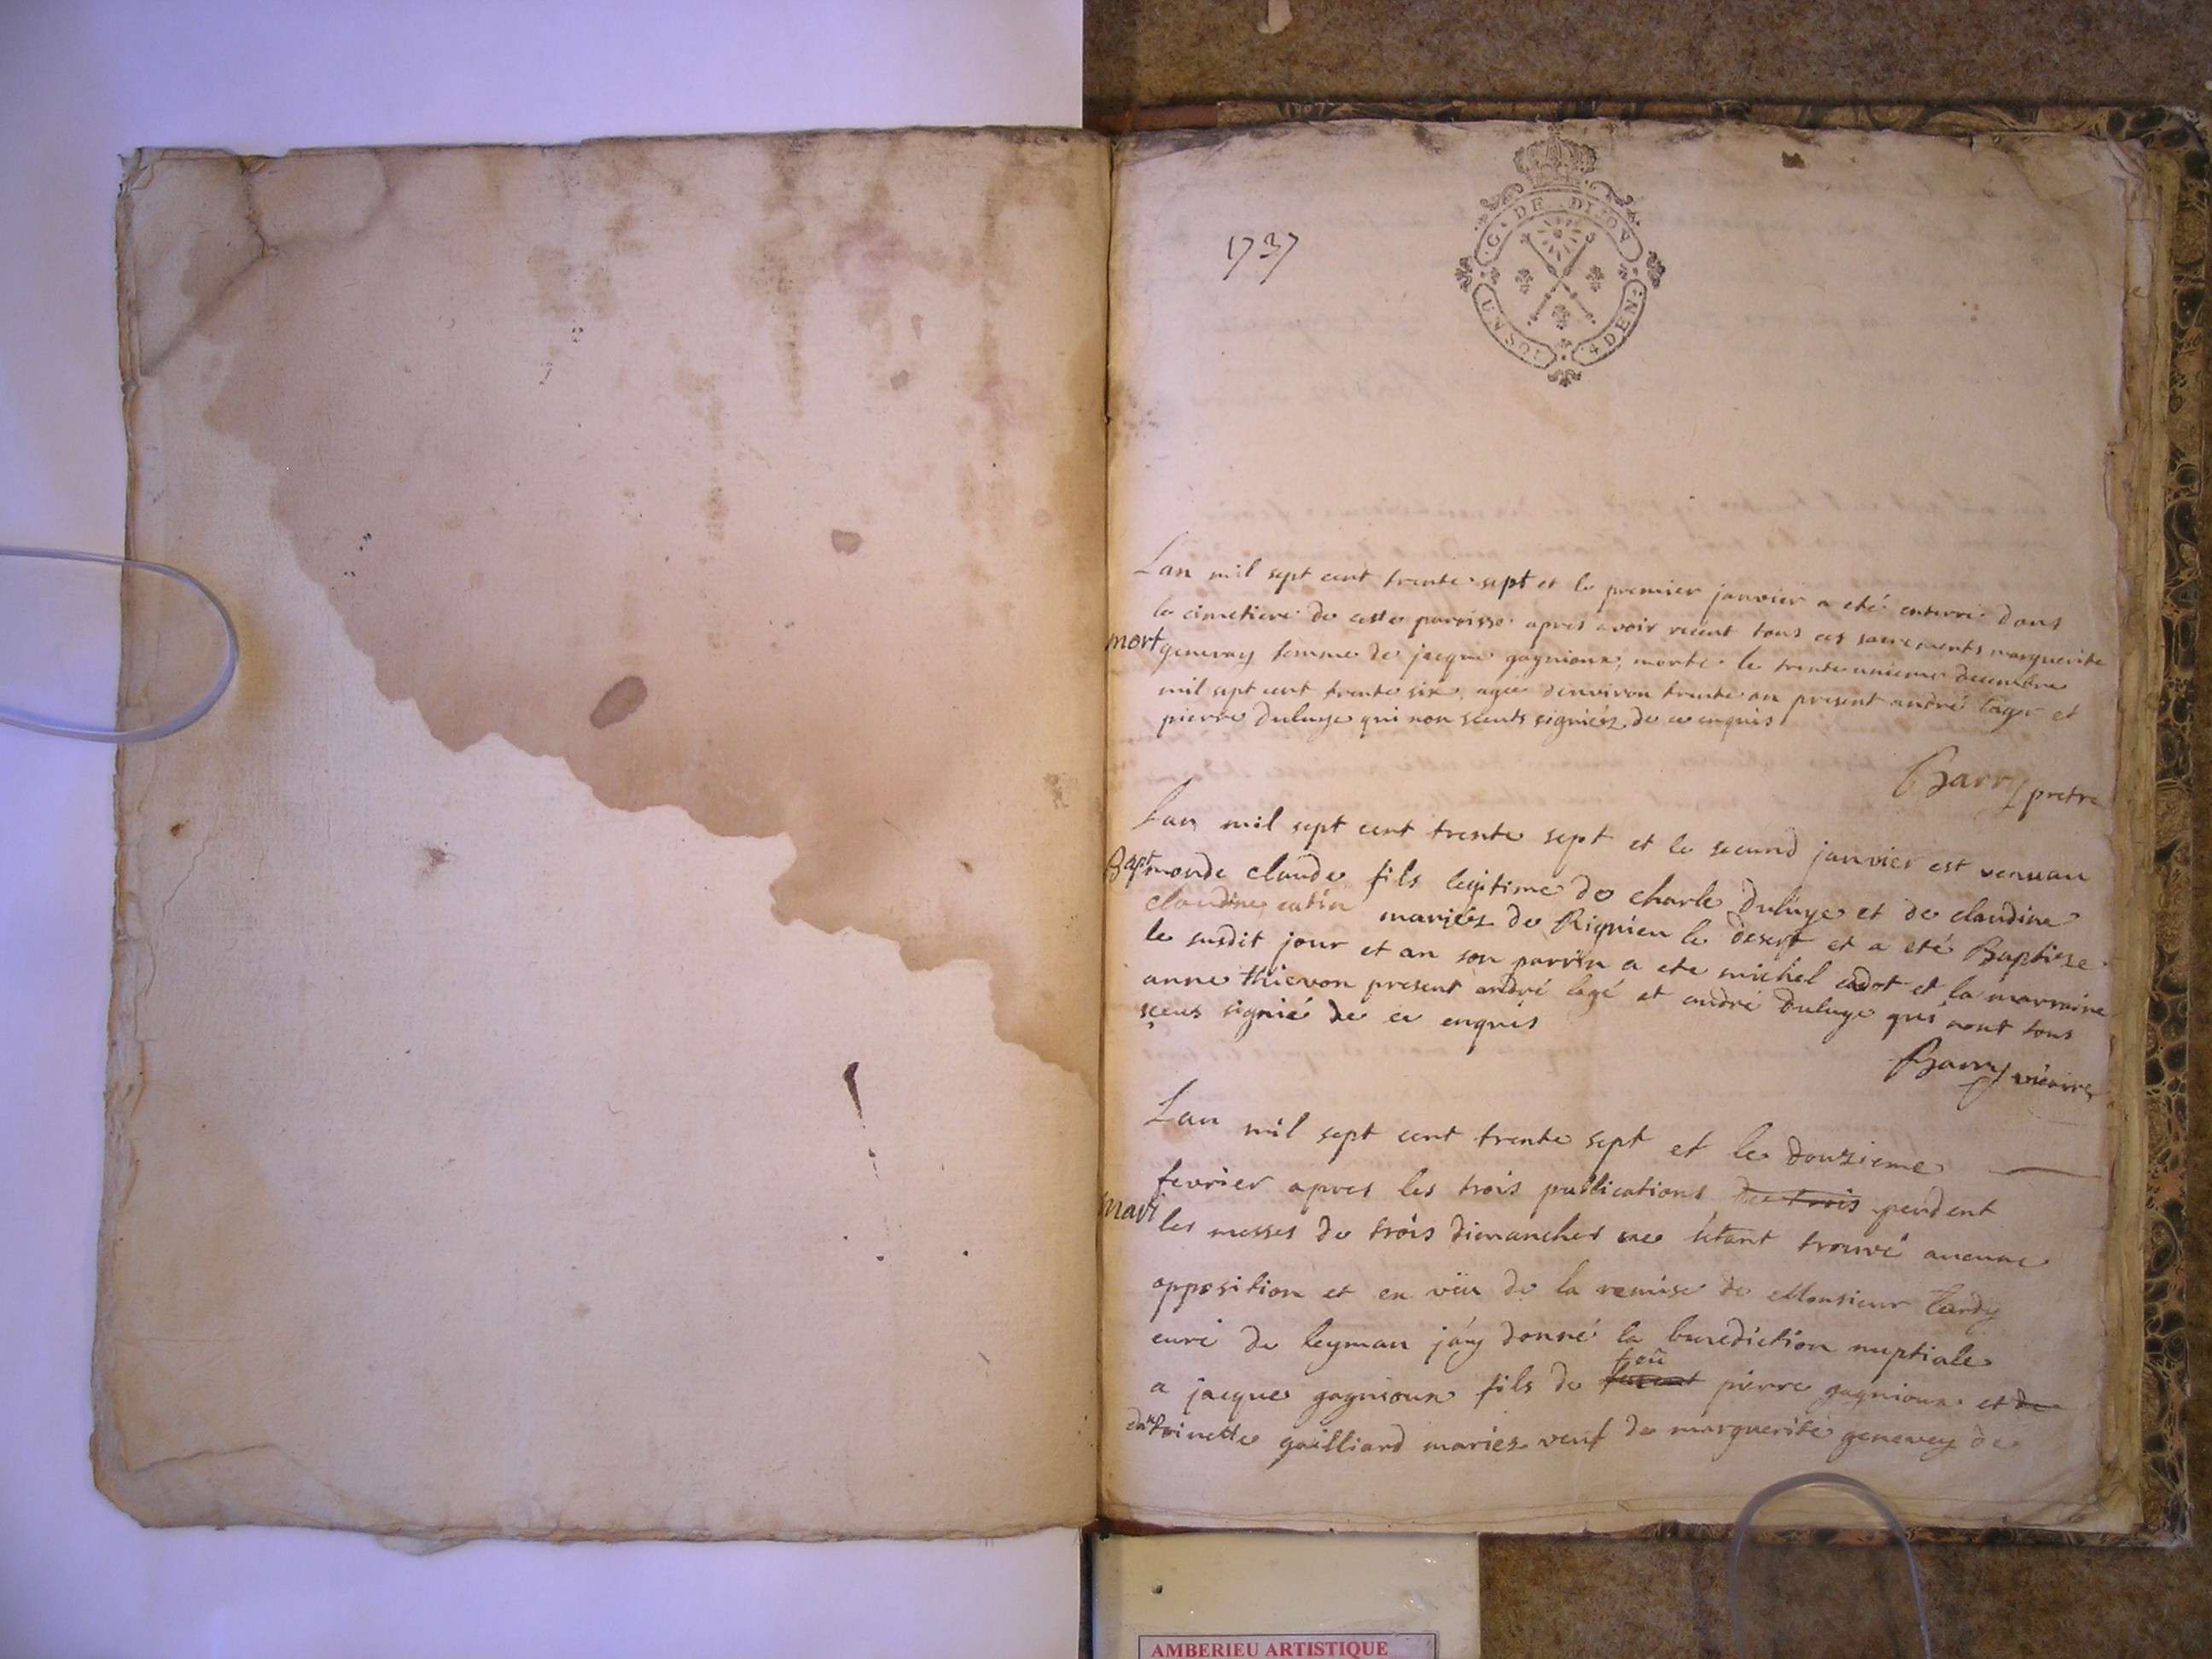 1737
G. DE DIJON
UN SOL 4 DEN.
Lan mil sept cent trente sept et le premier janvier a eté enterré dans
le cimetiere de cette paroisse apres avoir receut tous ces sacrements marguerite
mort
genevay femme de jacque gagnioux, morte le trente unieme decembre
mil sept cent trente six, agée denviron trente an present andré lager et
pierre duluye qui non sceuts signiéz de ce enquis
Barry pretre
Lan mil sept cent trente sept et le secund janvier est venu au
Bapt
monde claude fils legitime de charle duluye et de claudine
claudine catin mariéz de Rignieu le desert et a eté Baptize
le susdit jour et an son parrin a ete michel cadot et la marraine
anne thievon present andré lagé et andré duluye qui nont tous
sçeus signié de ce enquis
Barry vicaire
Lan mil sept cent trente sept et le douzieme
fevrier apres les trois publications de trois pendent
mari
les messes de trois dimanches ne sétant trouvé aucune
opposition et en vëu de la remise de Monsieur tardy
curé de leyman jáy donné la benediction nuptiale
feû
a jacque gagnioux fils de pierre gagnioux et de
dantoinette gailliard mariez veuf de marguerite genevey de
AMBERIEU ARTISTIQUE